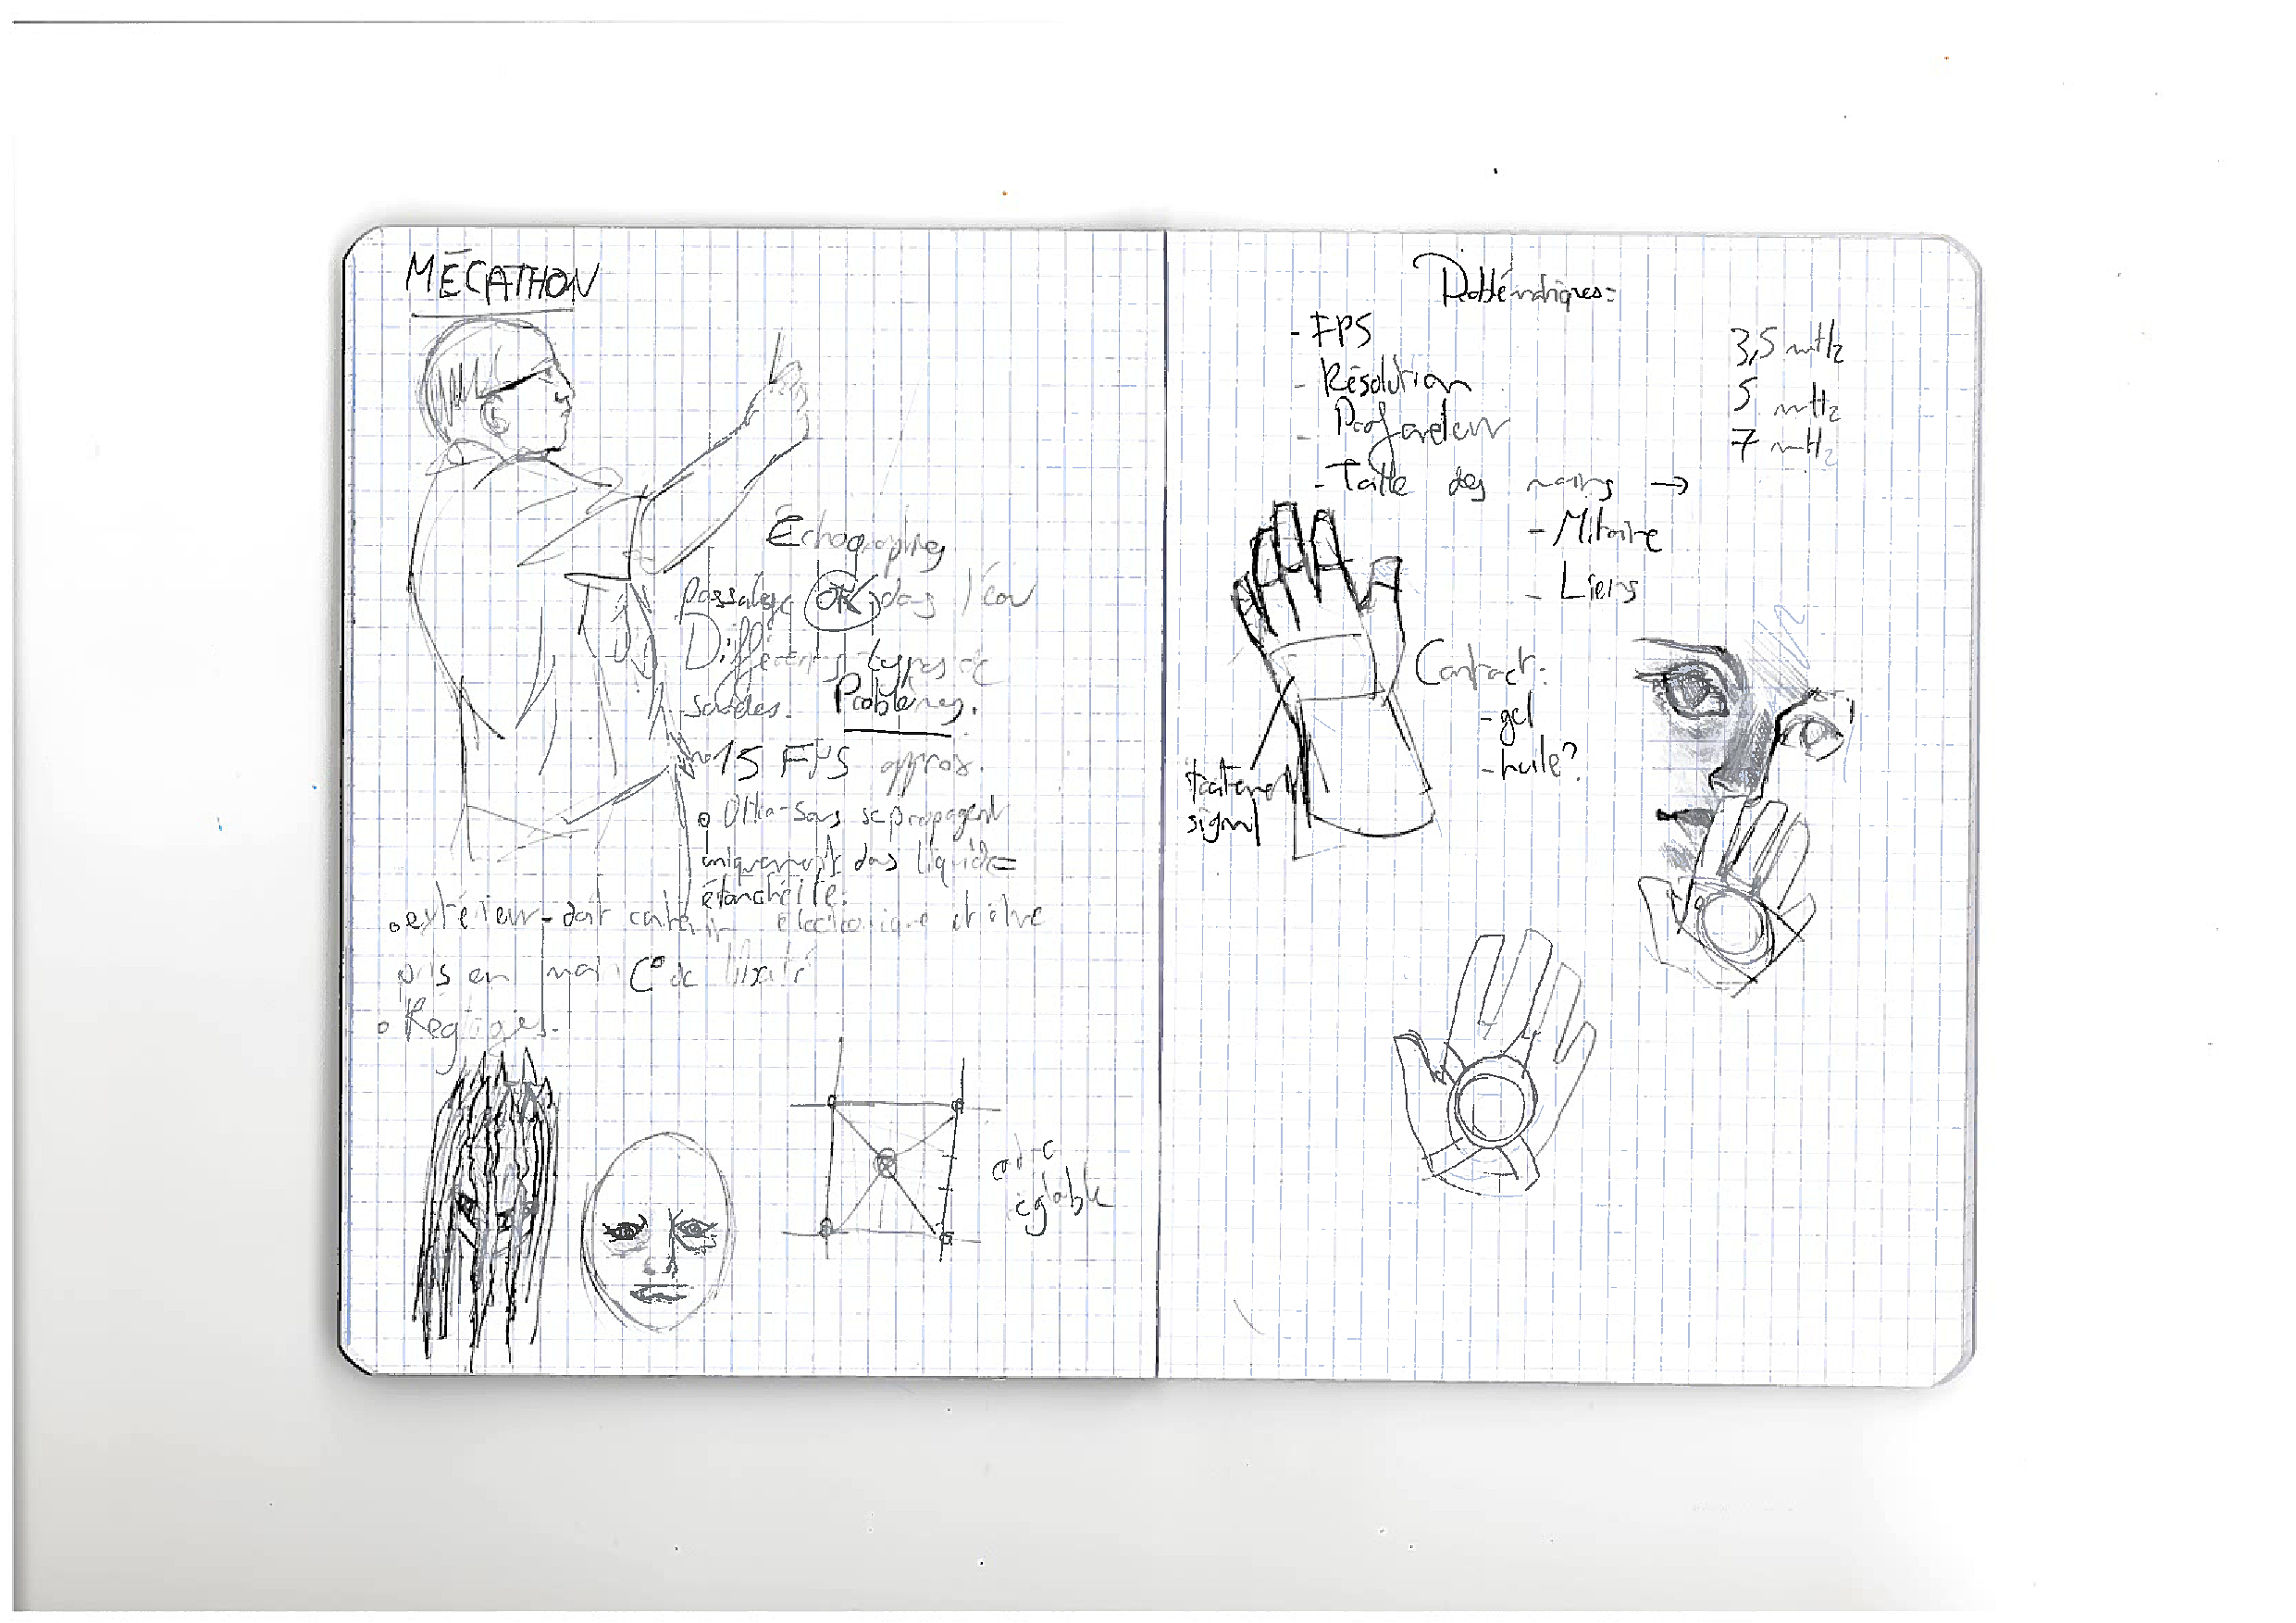 MÉCATHON
Échographies
Passage OK dans l'eau
Différents types de
sondes. Problèmes.
15 FPS approx.
Ultra-sons se propagent
uniquement dans liquide =
étanchéité.
extérieur doit contenir électronique et être
pris en main
Réglages.
réglable
Problématiques:
- FPS
- Résolution
- Profondeur
- Taille des mains →
- Mitaine
- Liens
3,5 mHz
5 mHz
7 mHz
Contact:
- gel
- huile?
traitement
signal